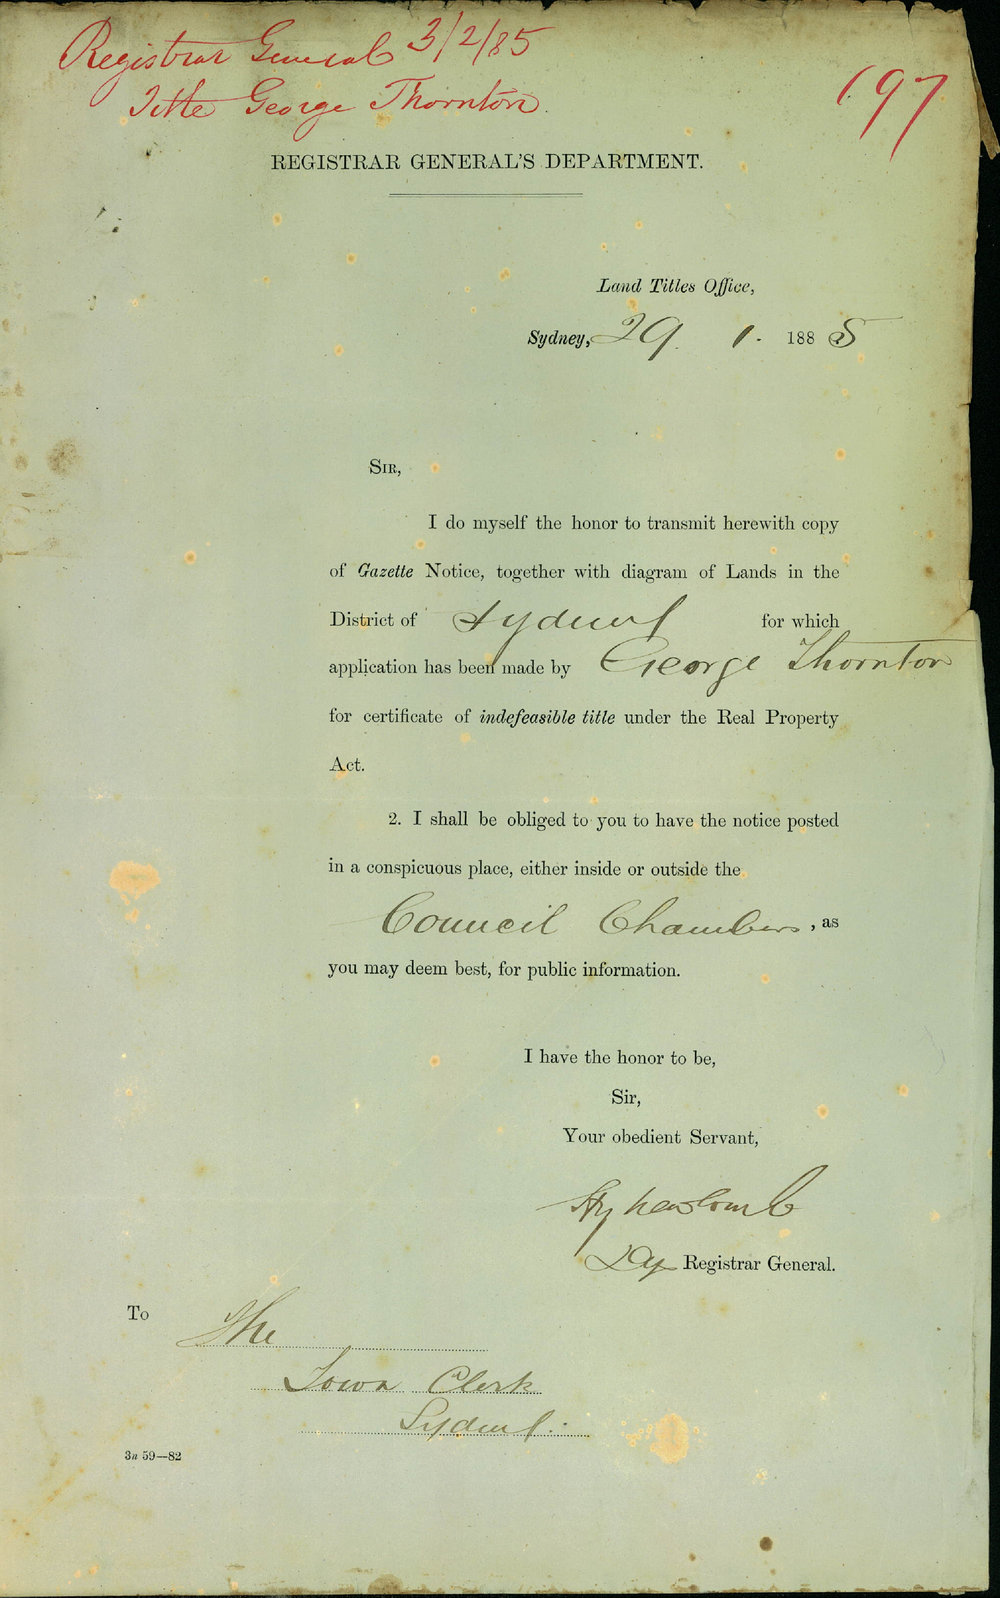 Registrar General 3/2/85
Title George Thornton.
197
REGISTRAR GENERAL'S DEPARTMENT.
Land Titles Office,
Sydney, 29. 1. 1885
SIR,
I do myself the honor to transmit herewith copy
of Gazette Notice, together with diagram of Lands in the
District of Sydney for which
application has been made by George Thornton
for certificate of indefeasible title under the Real Property
Act.
2. I shall be obliged to you to have the notice posted
in a conspicuous place, either inside or outside the
Council Chambers, as
you may deem best, for public information.
I have the honor to be,
Sir,
Your obedient Servant,
Newcomb
Dep Registrar General.
To The
Town Clerk
Sydney.
3a 59—82